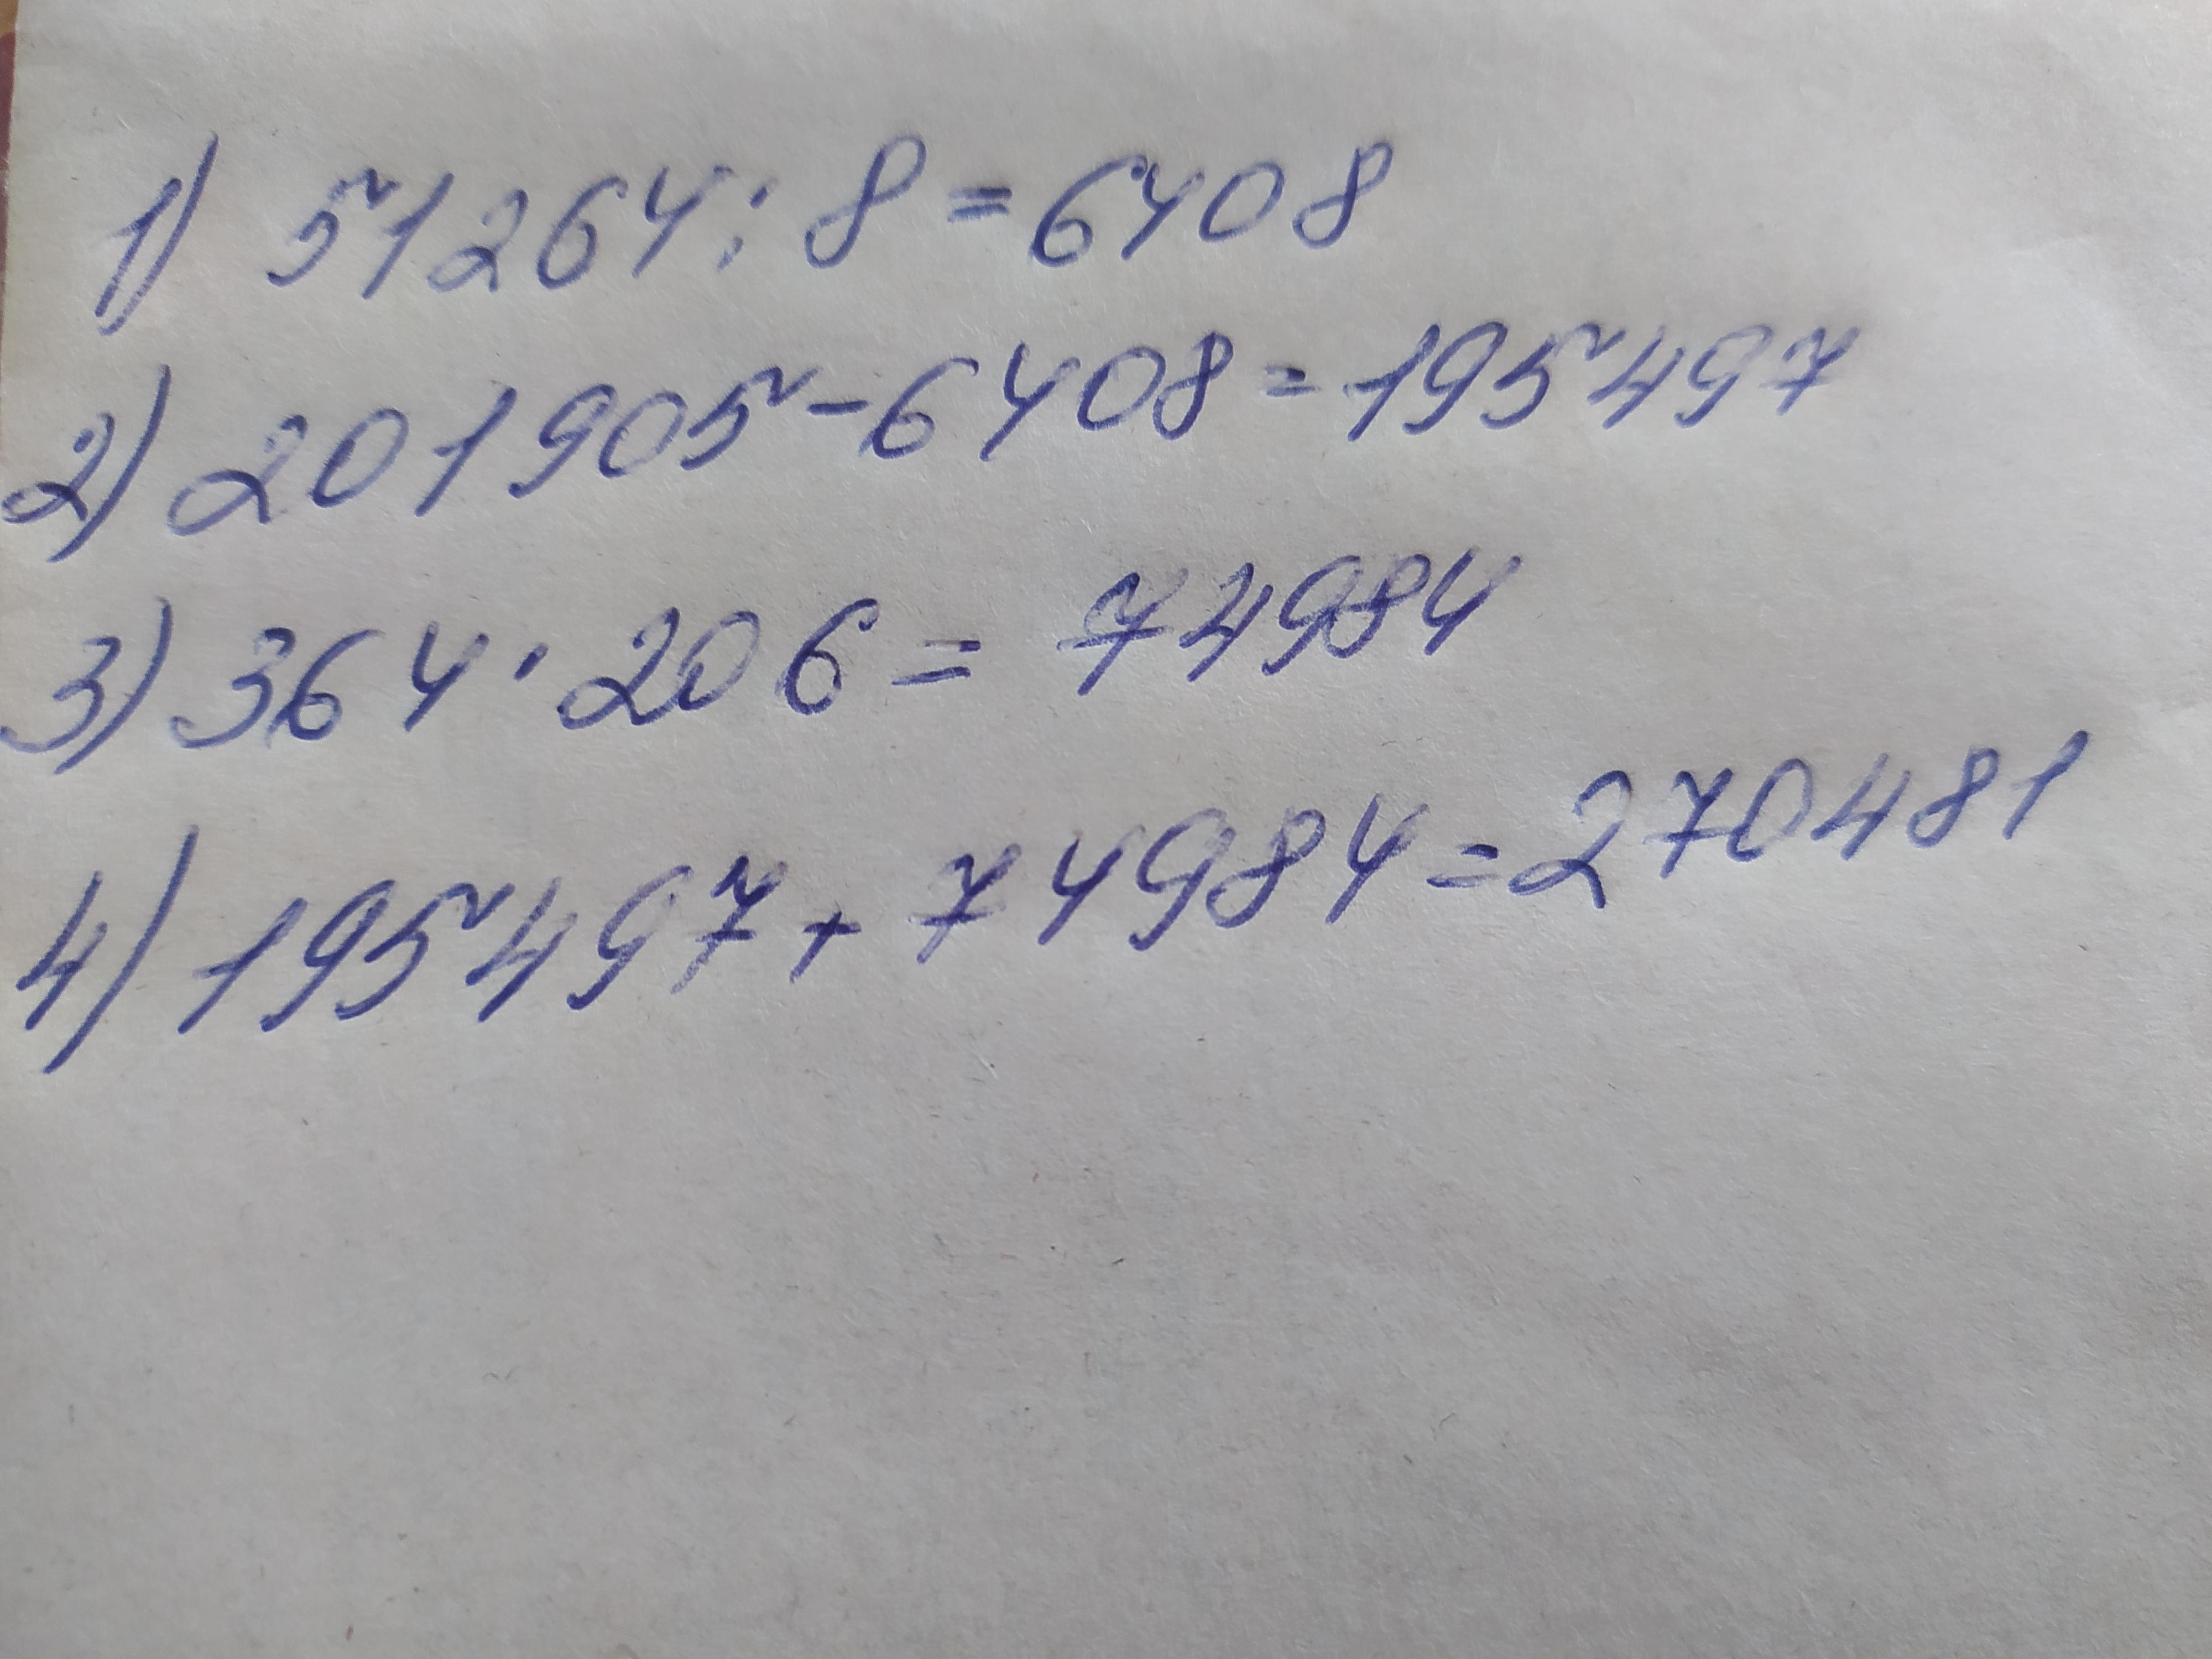 1) 51264 : 8 = 6408
2) 201905 - 6408 = 195497
3) 364 · 206 = 74984
4) 195497 + 74984 = 270481